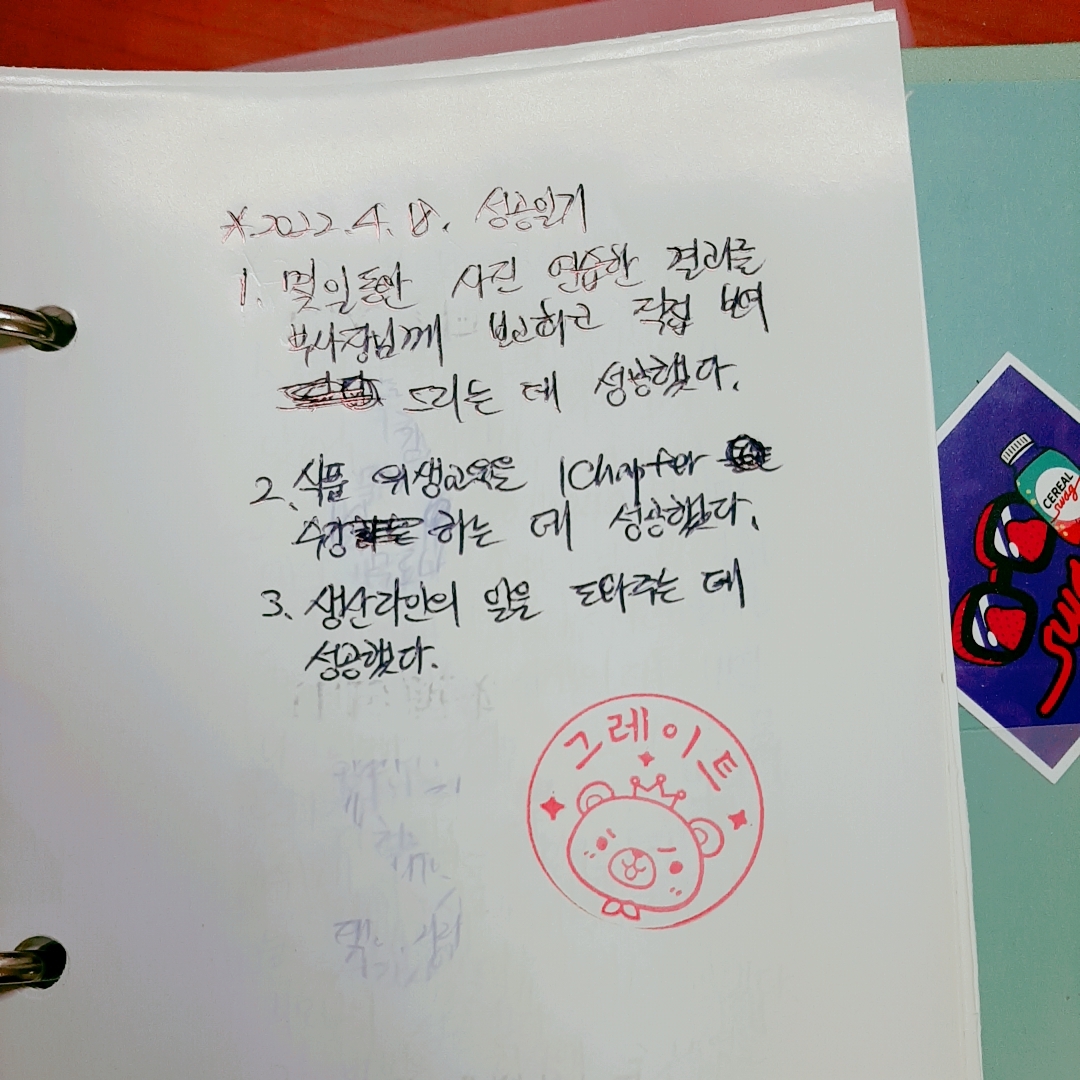 *.2022.4. 성공일기
1. 몇일동안 사진 연습한 결과를
부사장님께 보고하고 직접 보여
드리는 데 성공했다.
2. 식품 위생교육을 1Chapter
수강 하는 데 성공했다.
3. 생산라인의 일을 도와주는 데
성공했다.
그레이트
CEREAL
swag